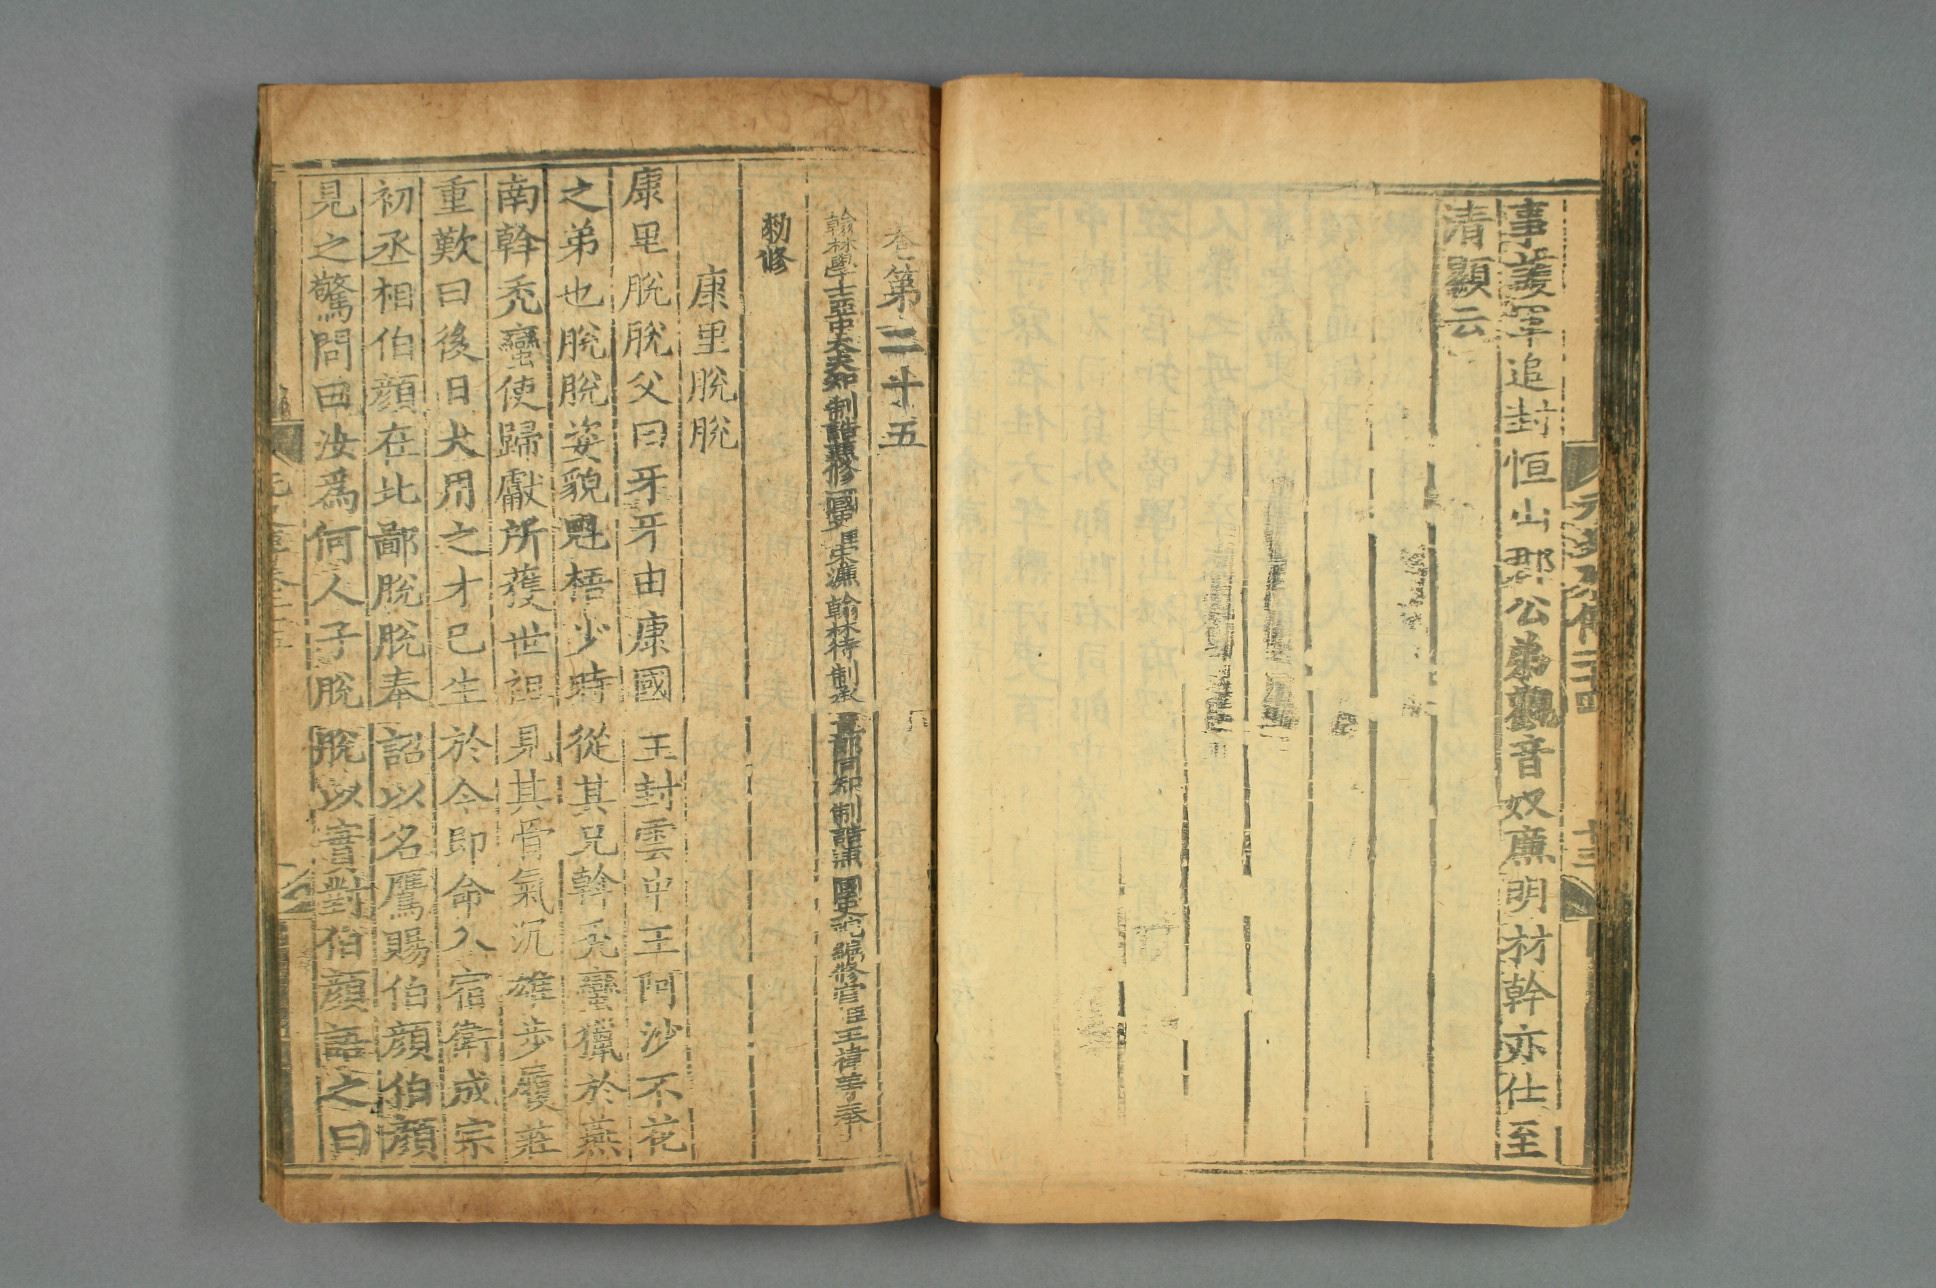 事護軍追封恒山郡公弟觀音奴廉明材幹亦仕至
清顯云
卷第二十五
翰林學士亞中大夫知制誥兼修國史臣宋濂翰林待制承直郎同知制誥兼國史院編修官臣王禕等奉
勑修
康里脫脫
康里脫脫父曰牙牙由康國王封雲中王阿沙不花
之弟也脫脫姿貌魁梧少時從其兄斡禿蠻獵於燕
南斡禿蠻使歸獻所獲世祖見其骨氣沉雄步履莊
重歎曰後日大用之才已生於今即命入宿衛成宗
初丞相伯顔在北鄙脫脫奉詔以名鷹賜伯顔伯顔
見之驚問曰汝爲何人子脫脫以實對伯顔語之曰